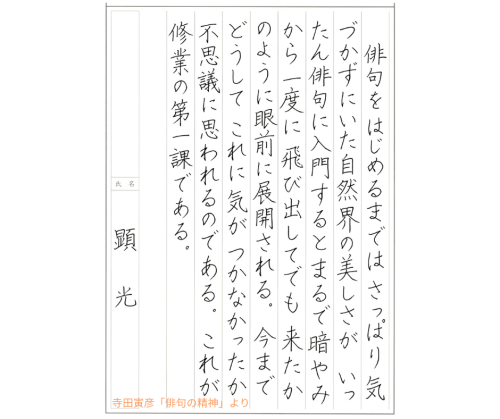 俳句をはじめるまではさっぱり気
づかずにいた自然界の美しさが いっ
たん俳句に入門するとまるで暗やみ
から一度に飛び出してでも来たか
のように眼前に展開される。今まで
どうしてこれに気がつかなかったか
不思議に思われるのである。これが
修業の第一課である。
氏名
顕光
寺田寅彦「俳句の精神」より